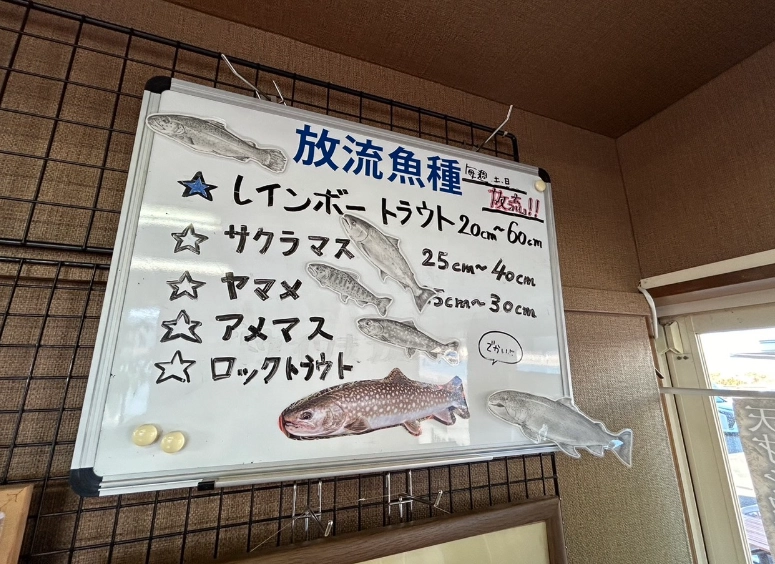 放流魚種
毎週 土.日
放流!!
レインボートラウト 20cm~60cm
サクラマス 25cm~40cm
ヤマメ 5cm~30cm
アメマス
ロックトラウト
でかい!!